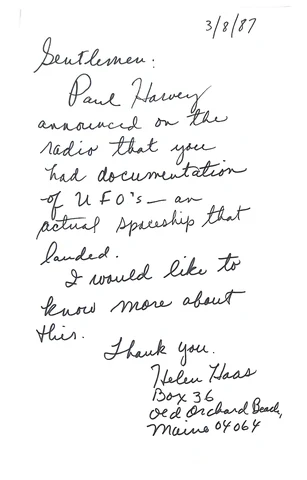 3/8/87
Gentlemen:
Paul Harvey
announced on the
radio that you
had documentation
of UFO's — an
actual spaceship that
landed.
I would like to
know more about
this.
Thank you.
Helen Haas
Box 36
Old Orchard Beach,
Maine 04064